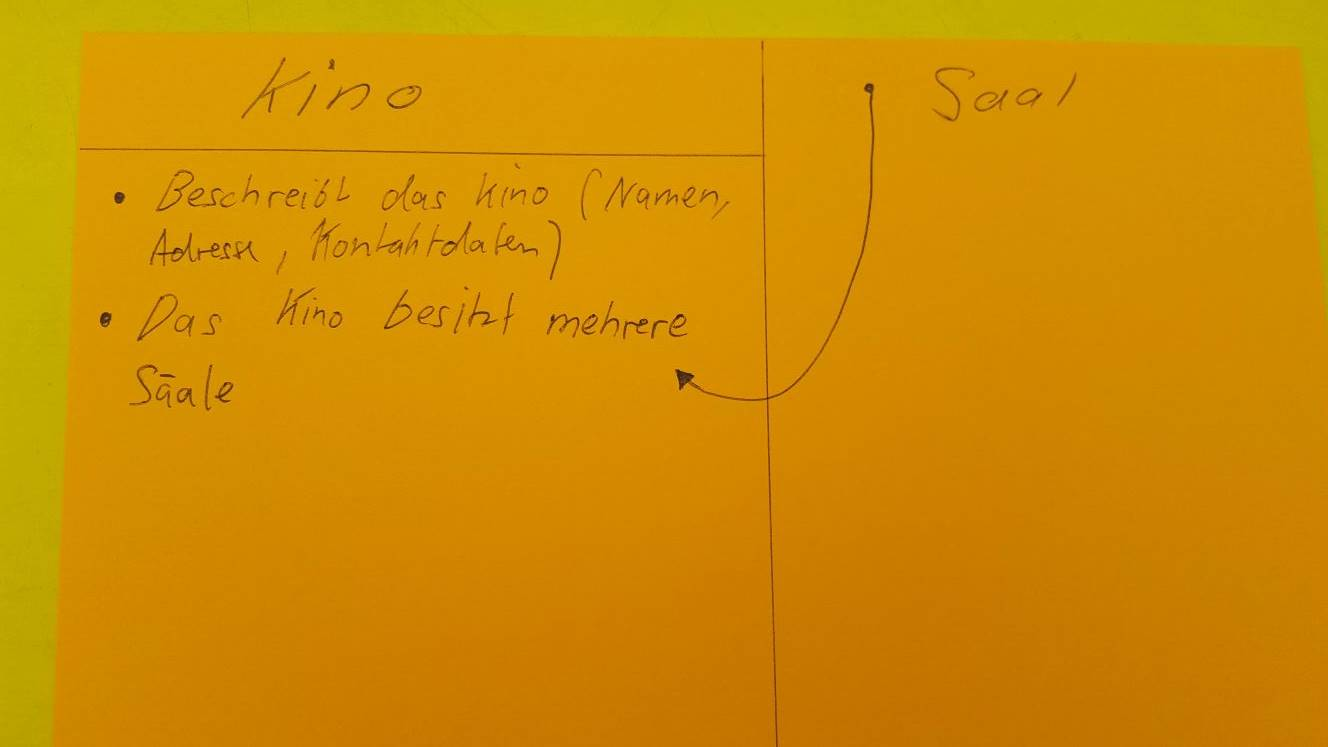 Kino
• Saal
• Beschreibt das Kino (Namen,
Adresse, Kontaktdaten)
• Das Kino besitzt mehrere
Säale